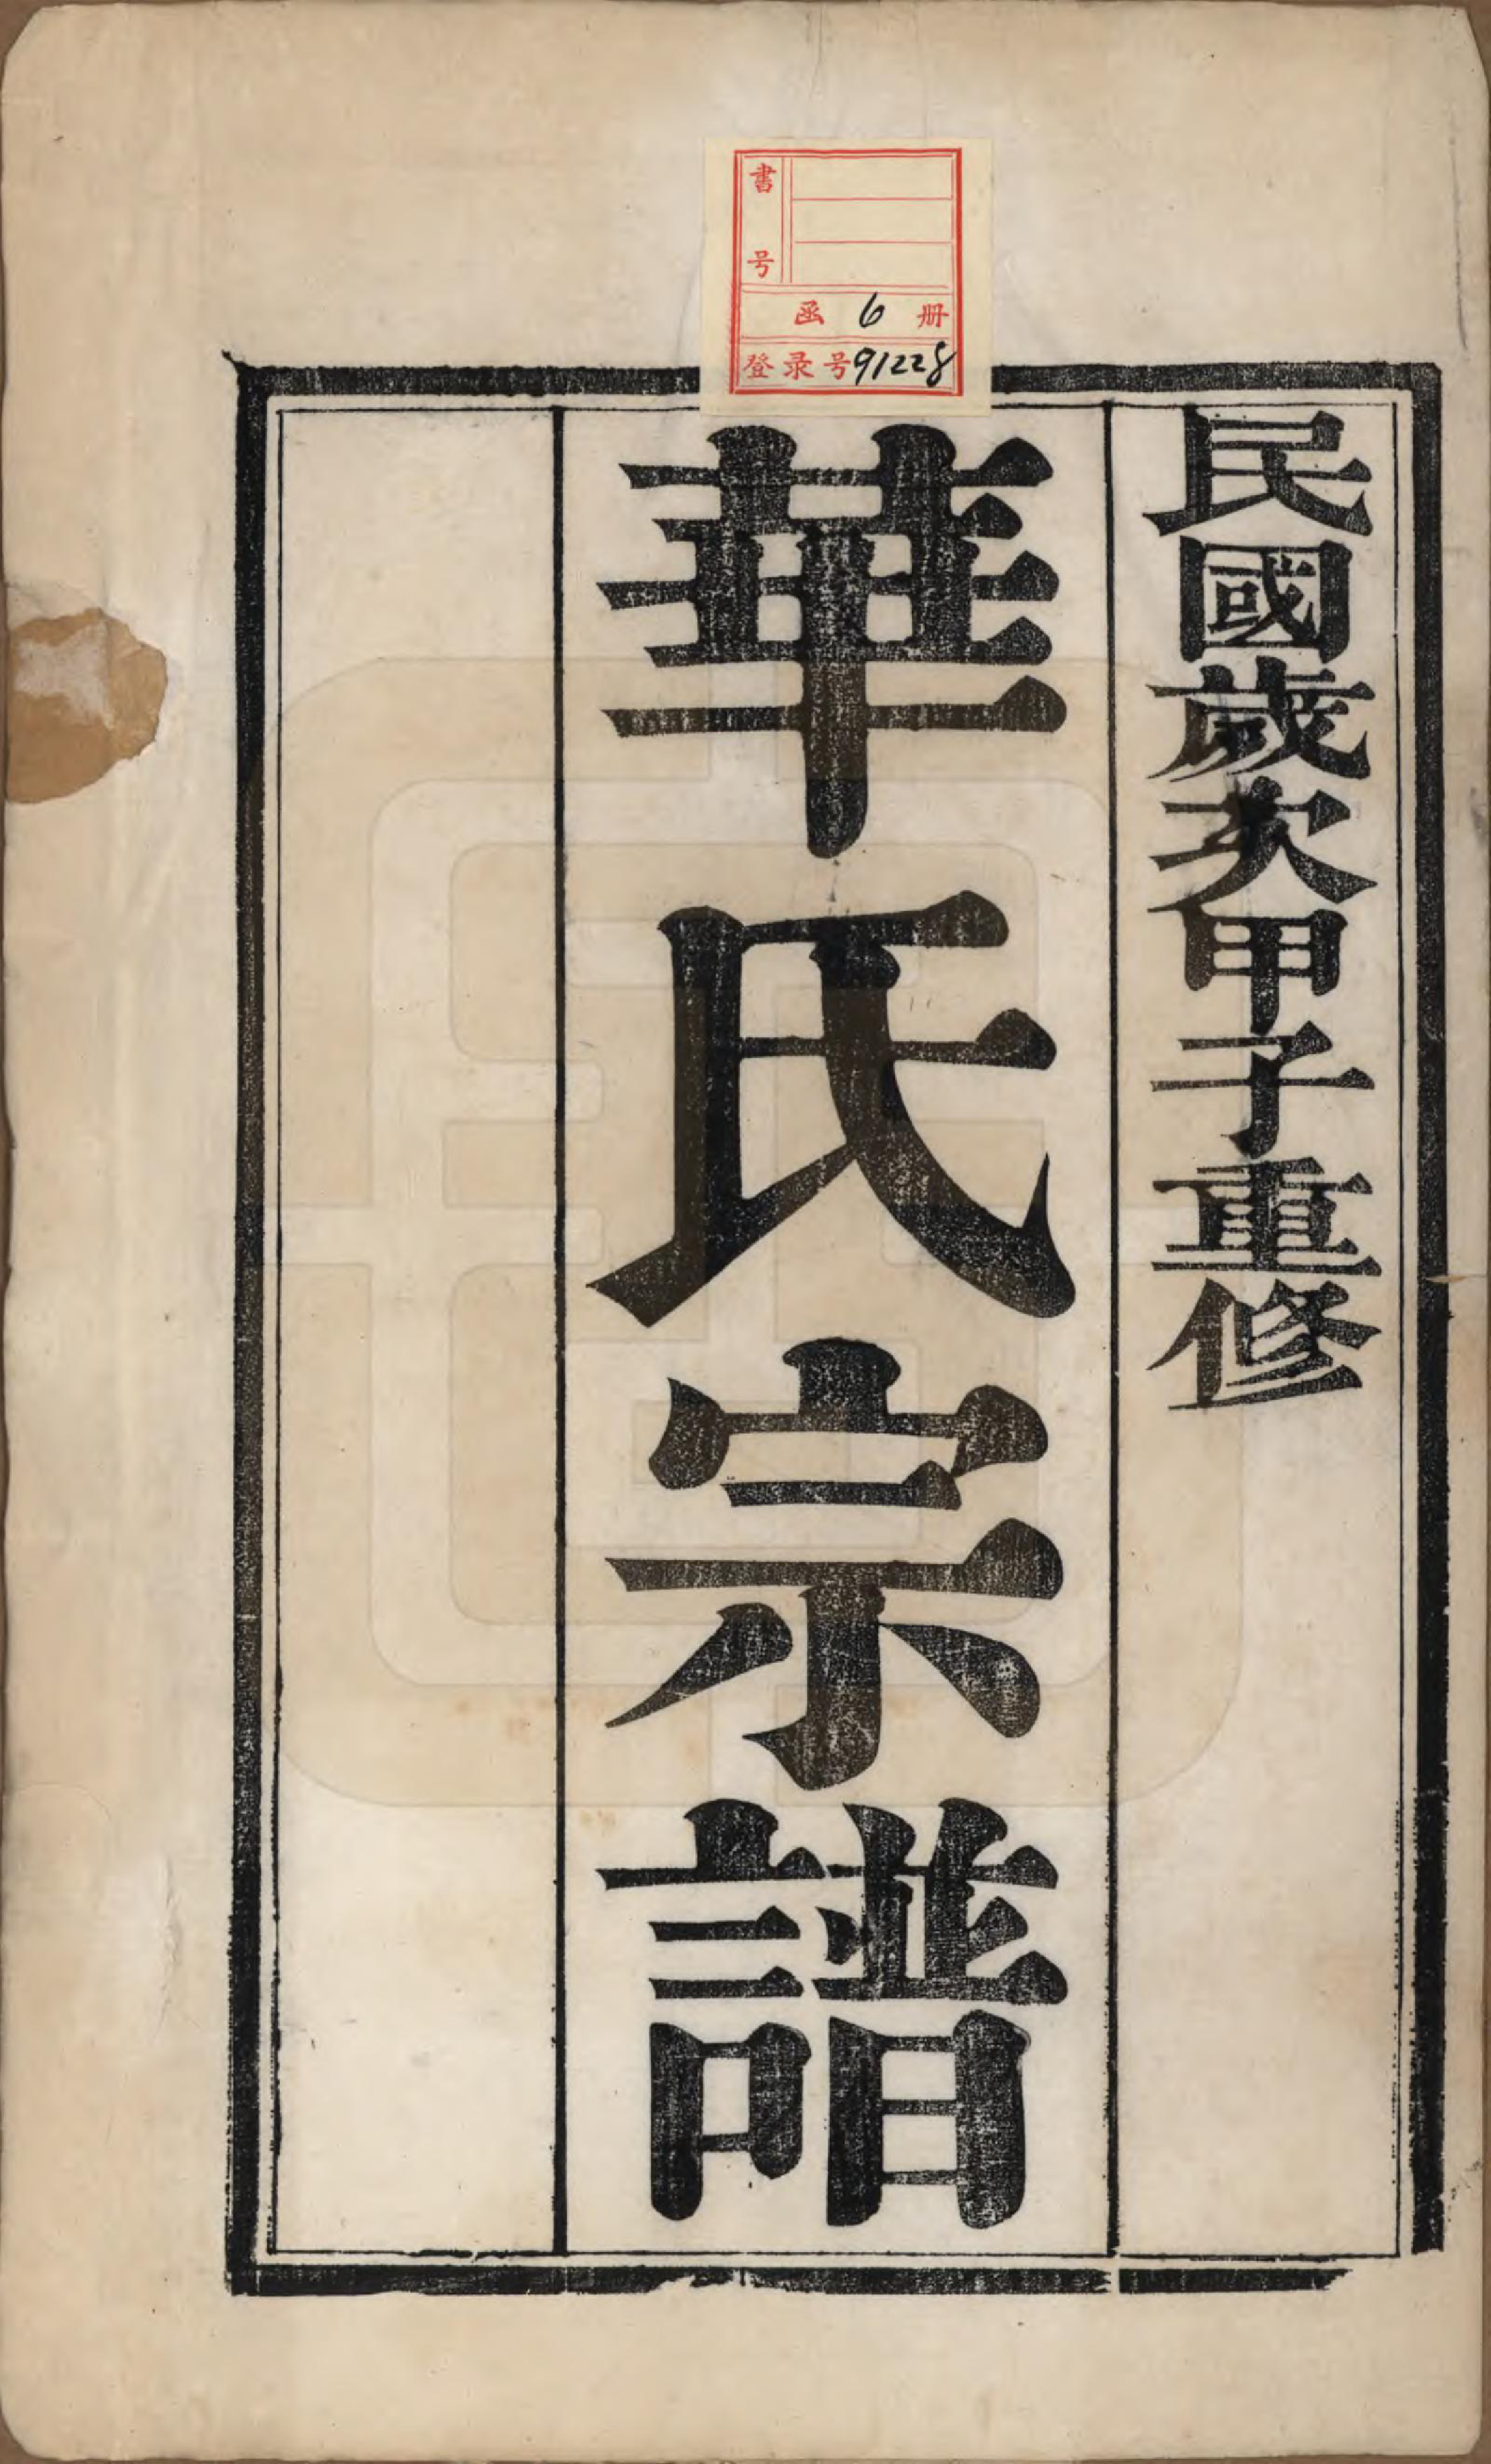 書号
函 6 册
登录号91228
民國歲次甲子重修
華氏宗譜